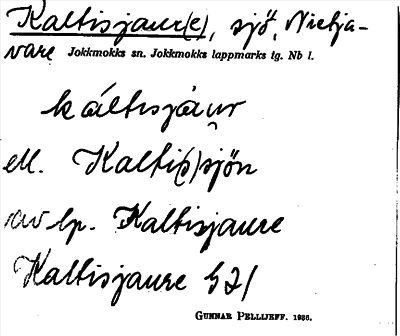 Kaltisjaur(e), sjö, Nietja-
vare Jokkmokks sn. Jokkmokks lappmarks tg. Nb l.
káltisjáur
ell. Kalti(s)sjön
av lp. Kaltisjaure
Kaltisjaure
GUNNAR PELLIJEFF. 1936.